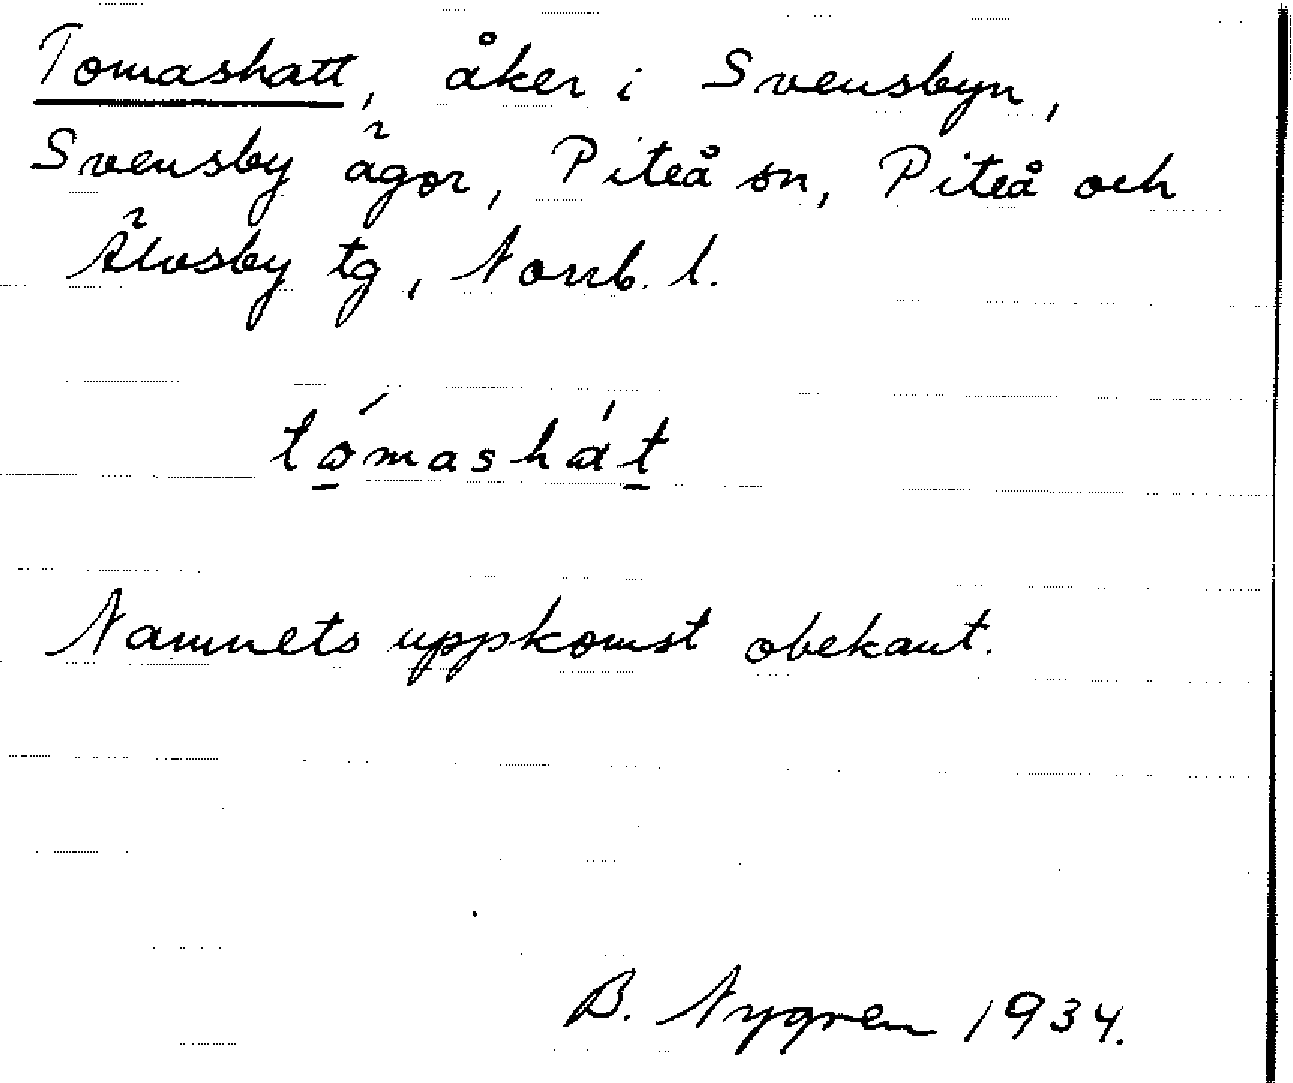 Tomashatt, åker i Svensbyn,
Svensby ägor, Piteå sn, Piteå och
Älvsby tg, Norrb. l.
tó̠mashát̠
Namnets uppkomst obekant.
B. Nygren 1934.